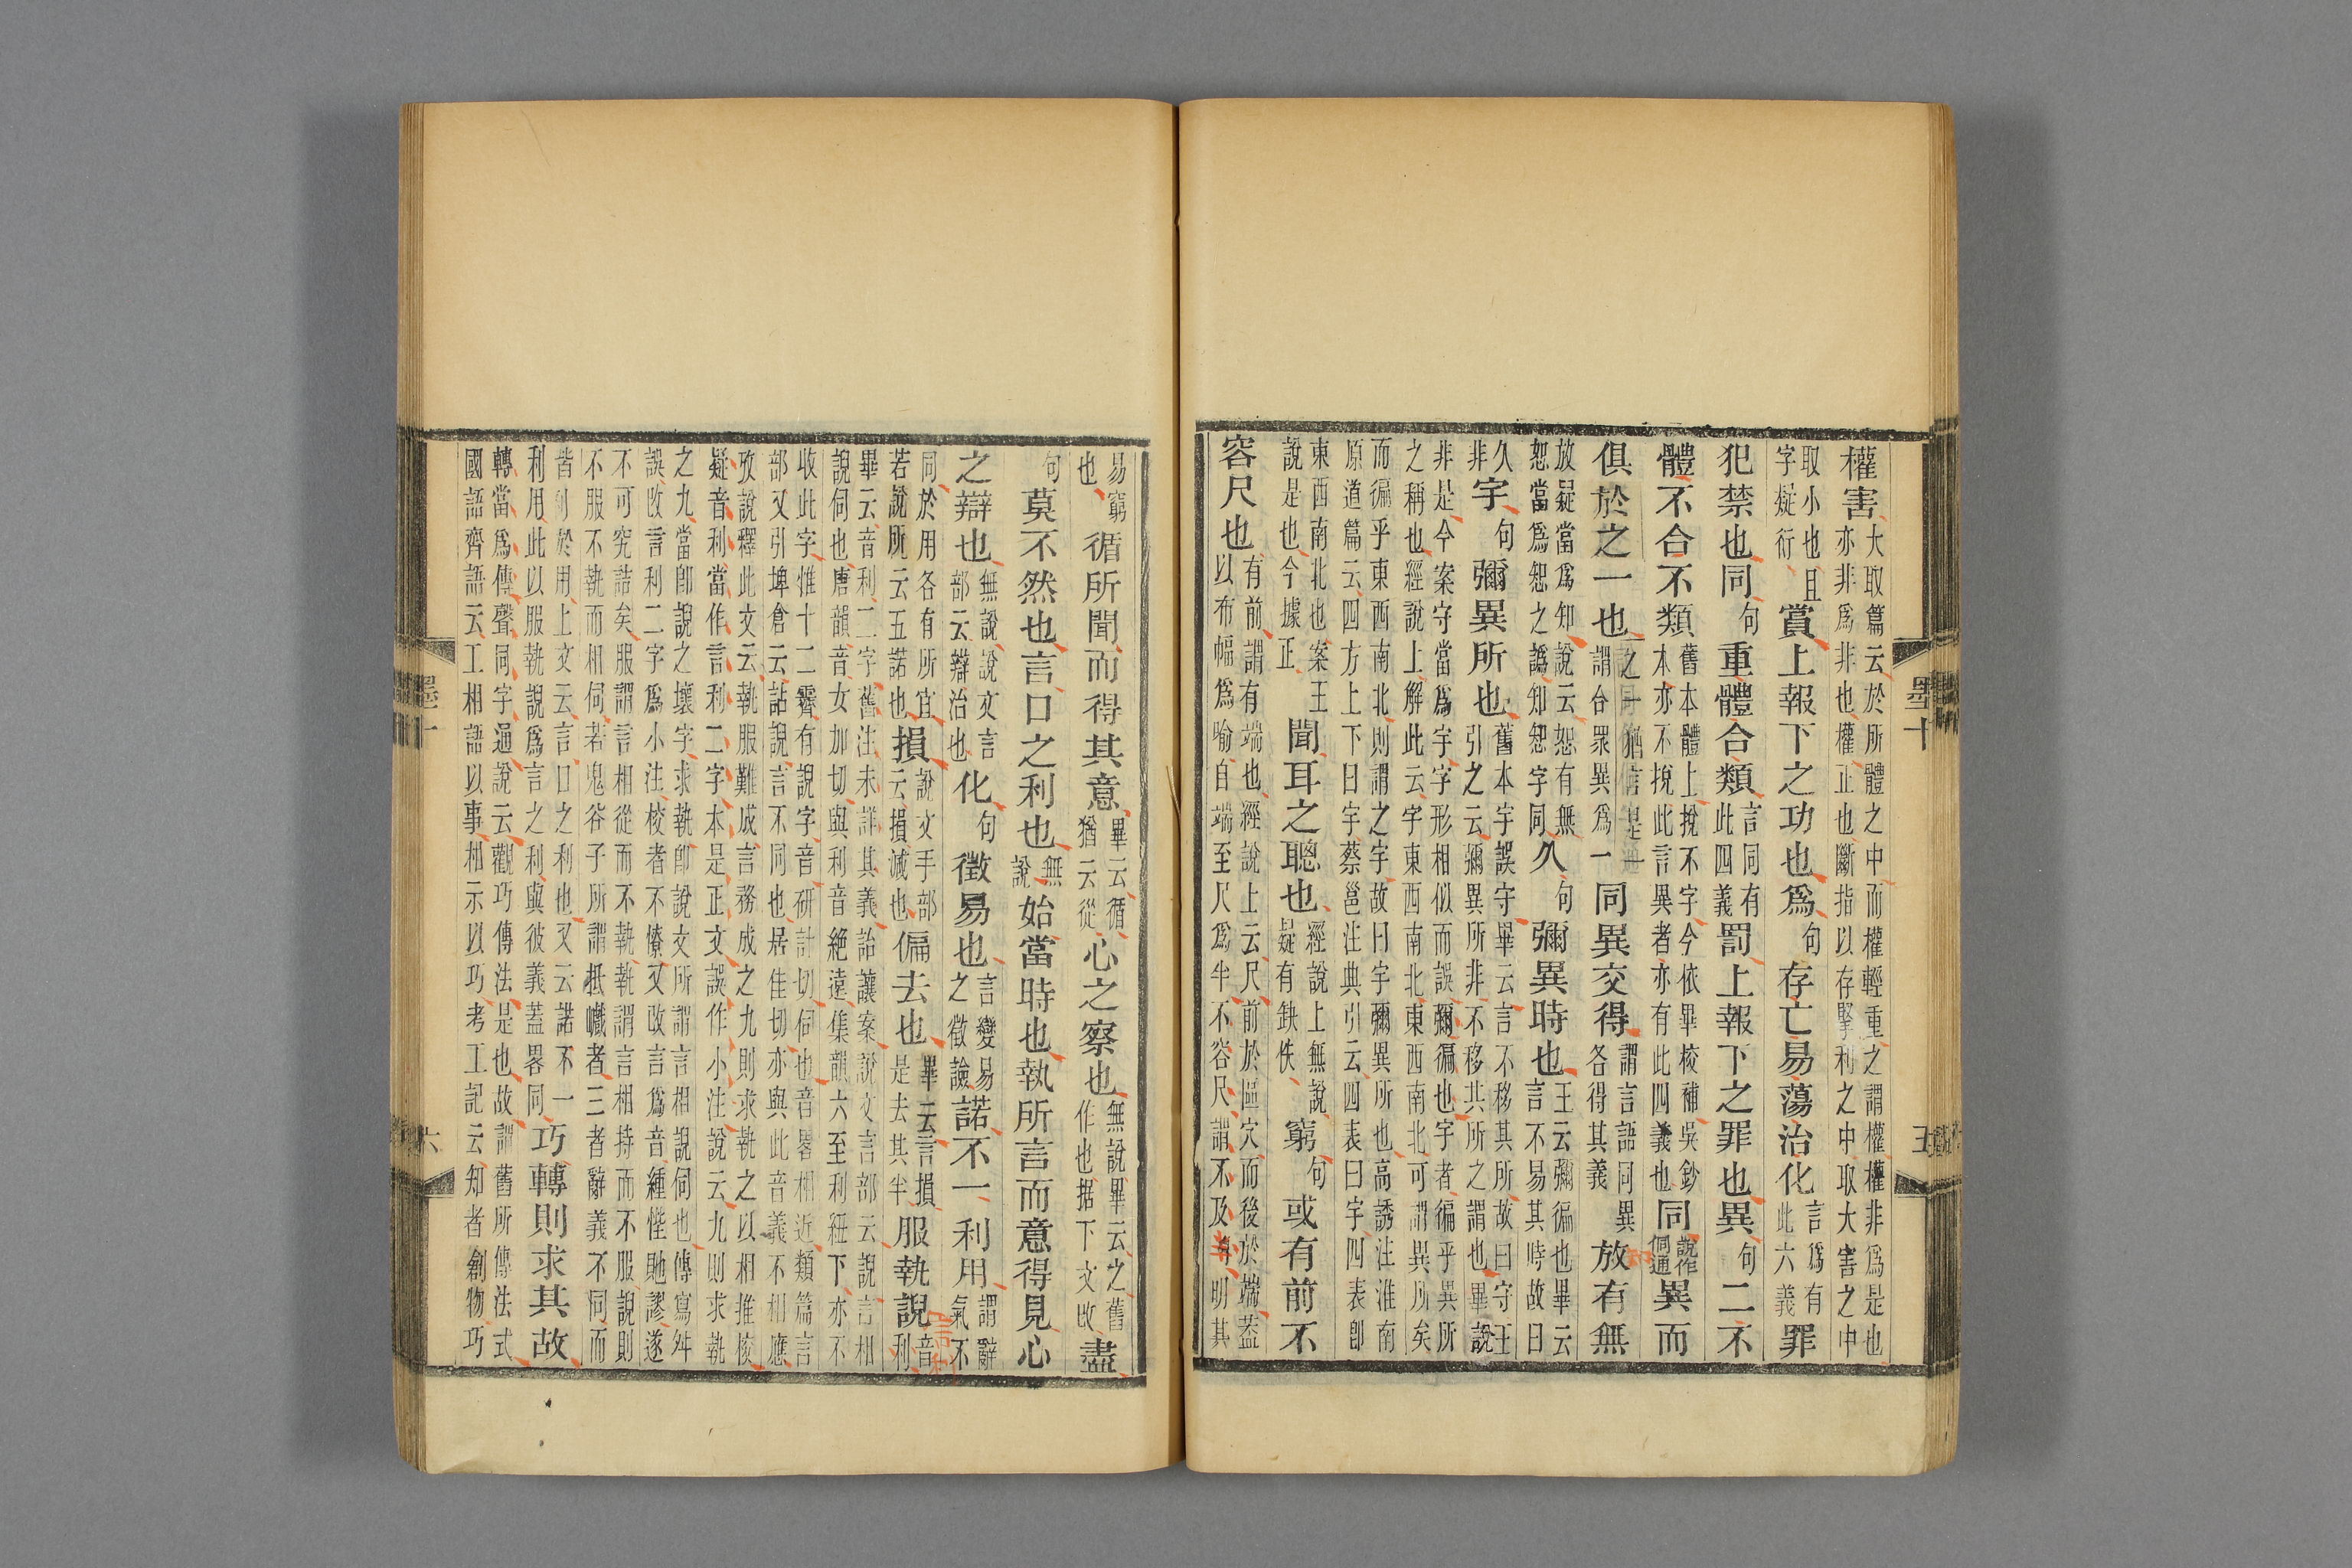 權害大取篇云於所體之中而權輕重之謂權權非爲是也亦非爲非也權正也斷指以存掔利之中取大害之中
取小也且字疑衍賞上報下之功也爲句存亡易蕩治化言爲有此六義罪
犯禁也同句重體合類言同有此四義罰上報下之罪也異句二不
體不合不類舊本體上挩不字今依畢校補吳鈔本亦不挩此言異者亦有此四義也同說作侗通異而
俱於之一也之一猶言是一謂合眾異爲一同異交得謂言語同異各得其義放有無
放疑當爲知說云恕有無恕當爲恕之譌知恕字同久句彌異時也王云彌徧也畢云言不易其時故曰
久非宇句彌異所也舊本宇誤守畢云言不移其所故曰守王引之云彌異所非不移其所之謂也畢說
非是今案守當爲宇字形相似而誤彌徧也宇者徧乎異所之稱也經說上解此云宇東西南北東西南北可謂異所矣
而徧乎東西南北則謂之宇故曰宇彌異所也高誘注淮南原道篇云四方上下曰宇蔡邕注典引云四表曰宇四表卽
東西南北也案王說是也今據正聞耳之聰也經說上無說疑有缺佚窮句或有前不
容尺也有前謂有端也經說上云尺前於區穴而後於端蓋以布幅爲喻自端至尺爲半不容尺謂不及半明其
墨十
五
易窮也循所聞而得其意畢云循猶云從心之察也無說畢云之舊作也据下文改盡
句莫不然也言口之利也無說始當時也執所言而意得見心
之辯也無說說文言部云辯治也化句徵易也言變易之徵驗諾不一利用謂辭氣不
同於用各有所宜若說所云五諾也損說文手部云損減也偏去也畢云言損是去其半服執說音利
畢云音利二字舊注未詳其義詒讓案說文言部云說言相說伺也唐韻音女加切與利音絶遠集韻六至利紐下亦不
收此字惟十二霽有說字音研計切伺也音畧相近類篇言部又引埤倉云詀說言不同也居佳切亦與此音義不相應
攷說釋此文云執服難成言務成之九則求執之以相推校疑音利當作言利二字本是正文誤作小注說云九則求執
之九當卽說之壞字求執卽說文所謂言相說伺也傳寫舛誤改言利二字爲小注校者不憭又改言爲音緟悂貤謬遂
不可究詰矣服謂言相從而不執執謂言相持而不服說則不服不執而相伺若鬼谷子所謂抵巇者三者辭義不同而
皆利於用上文云言口之利也又云諾不一利用此以服執說爲言之利與彼義蓋畧同巧轉則求其故
轉當爲傳聲同字通說云觀巧傳法是也故謂舊所傳法式國語齊語云工相語以事相示以巧考工記云知者創物巧
墨十
六